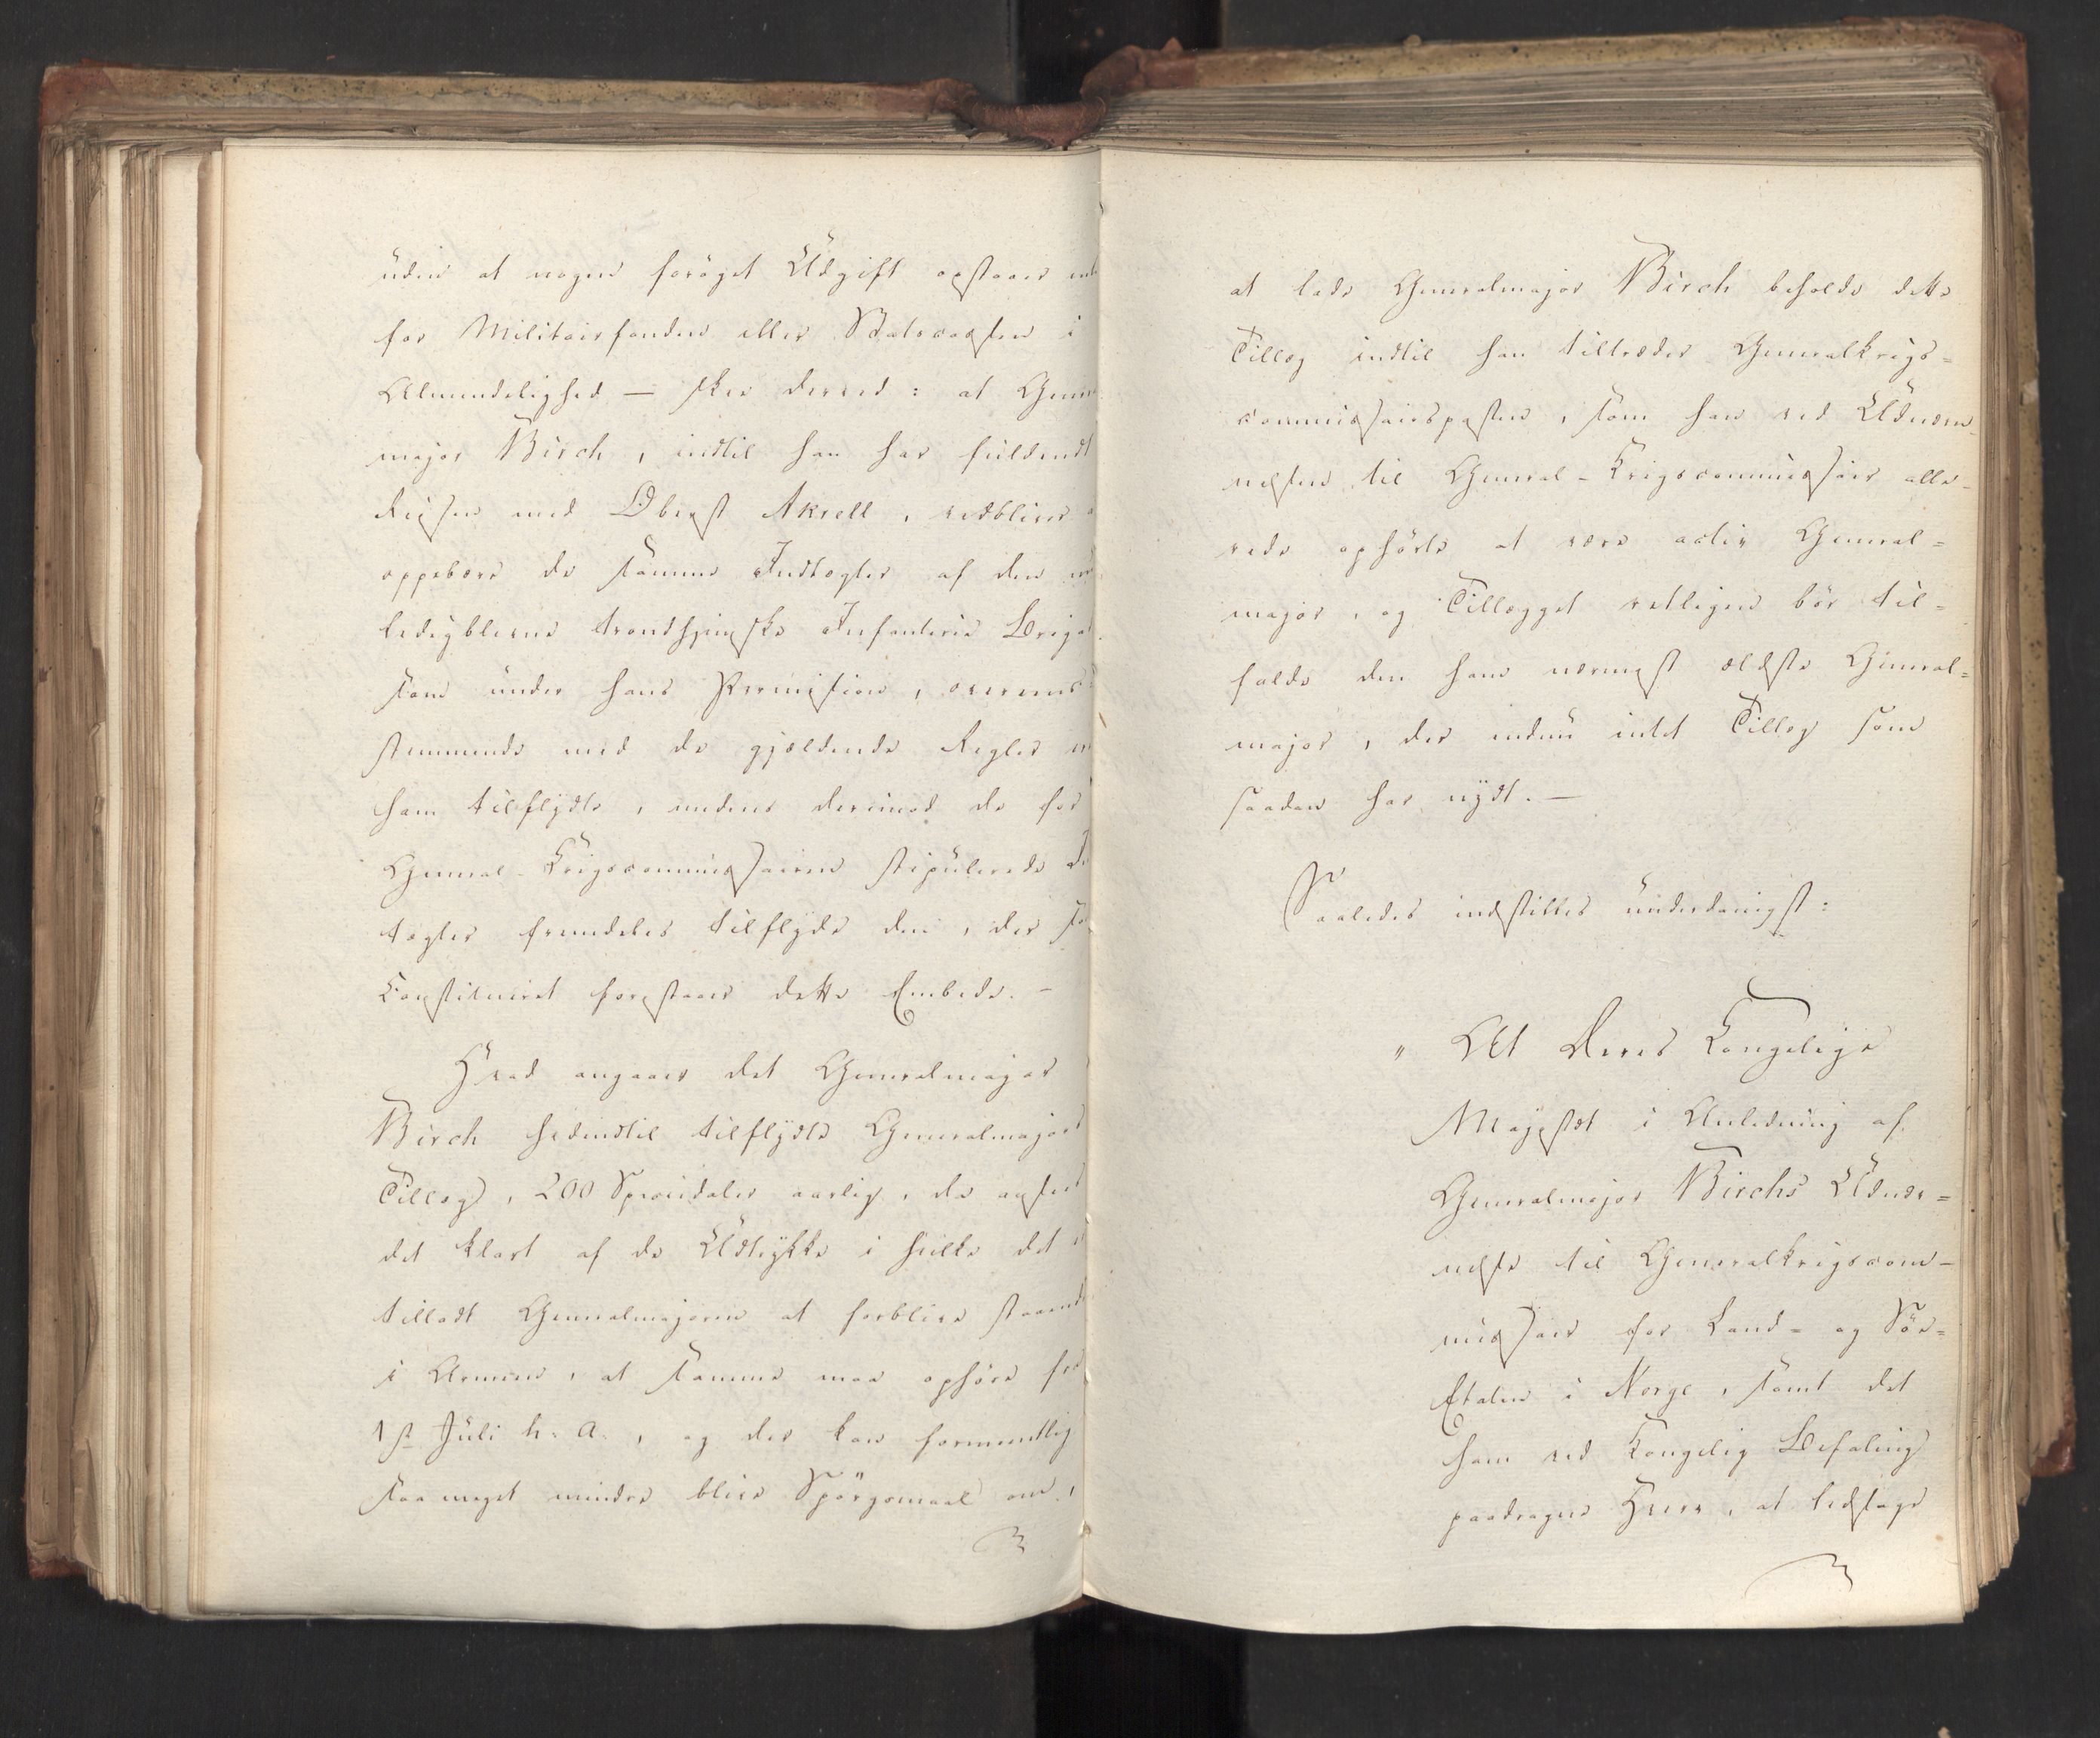 uden at nogen forøget Udgift opstaaer
for Militairfonden eller Statscassen i
Almindelighed – skee derved: at
major Birch, indtil han har fuldendt
Reisen med Oberst Akrell, vedbliver
oppebære de samme Indtægter af den
ledigblevne trondhjemske Infanterie
som under hans Permission, overeens
stemmende med de gjældende Regler
ham tilflydte, medens derimod de for
General-Krigscommissairen stipulerede
tægter fremdeles tilflyde den, der
Constitueret forestaaer dette Embede. –
Hvad angaaer det Generalmajor
Birch hidindtil tilflydte Generalmajors
Tillæg, 200 Speciedaler aarlig, da
det klart af de Udtrykke i hvilke det
tilladt Generalmajoren at forblive staaende
i Armeen, at samme maa ophøre fra
1ste Juli h. a., og der kan formeentlig
saa meget mindre blive Spørgsmaal om,
at lade Generalmajor Birch beholde dette
Tillæg indtil han tiltræder Generalkrigs=
commissairsposten, som han ved Udnævn-
nelsen til General-Krigscommissair alle-
rede ophørte at være activ General=
major, og Tillægget rettigen bør til=
falde den ham nærmest ældste General=
major, der endnu intet Tillæg som
saadan har nydt. –
Saaledes indstilles underdanigst:
" At Deres Kongelige
Majestæt i Anledning af
Generalmajor Birchs Udnæv=
nelse til Generalkrigscom-
missair for Land- og Søe=
Etaten i Norge, samt det
ham ved Kongelig Befaling
paadragne Hverv, at ledsage